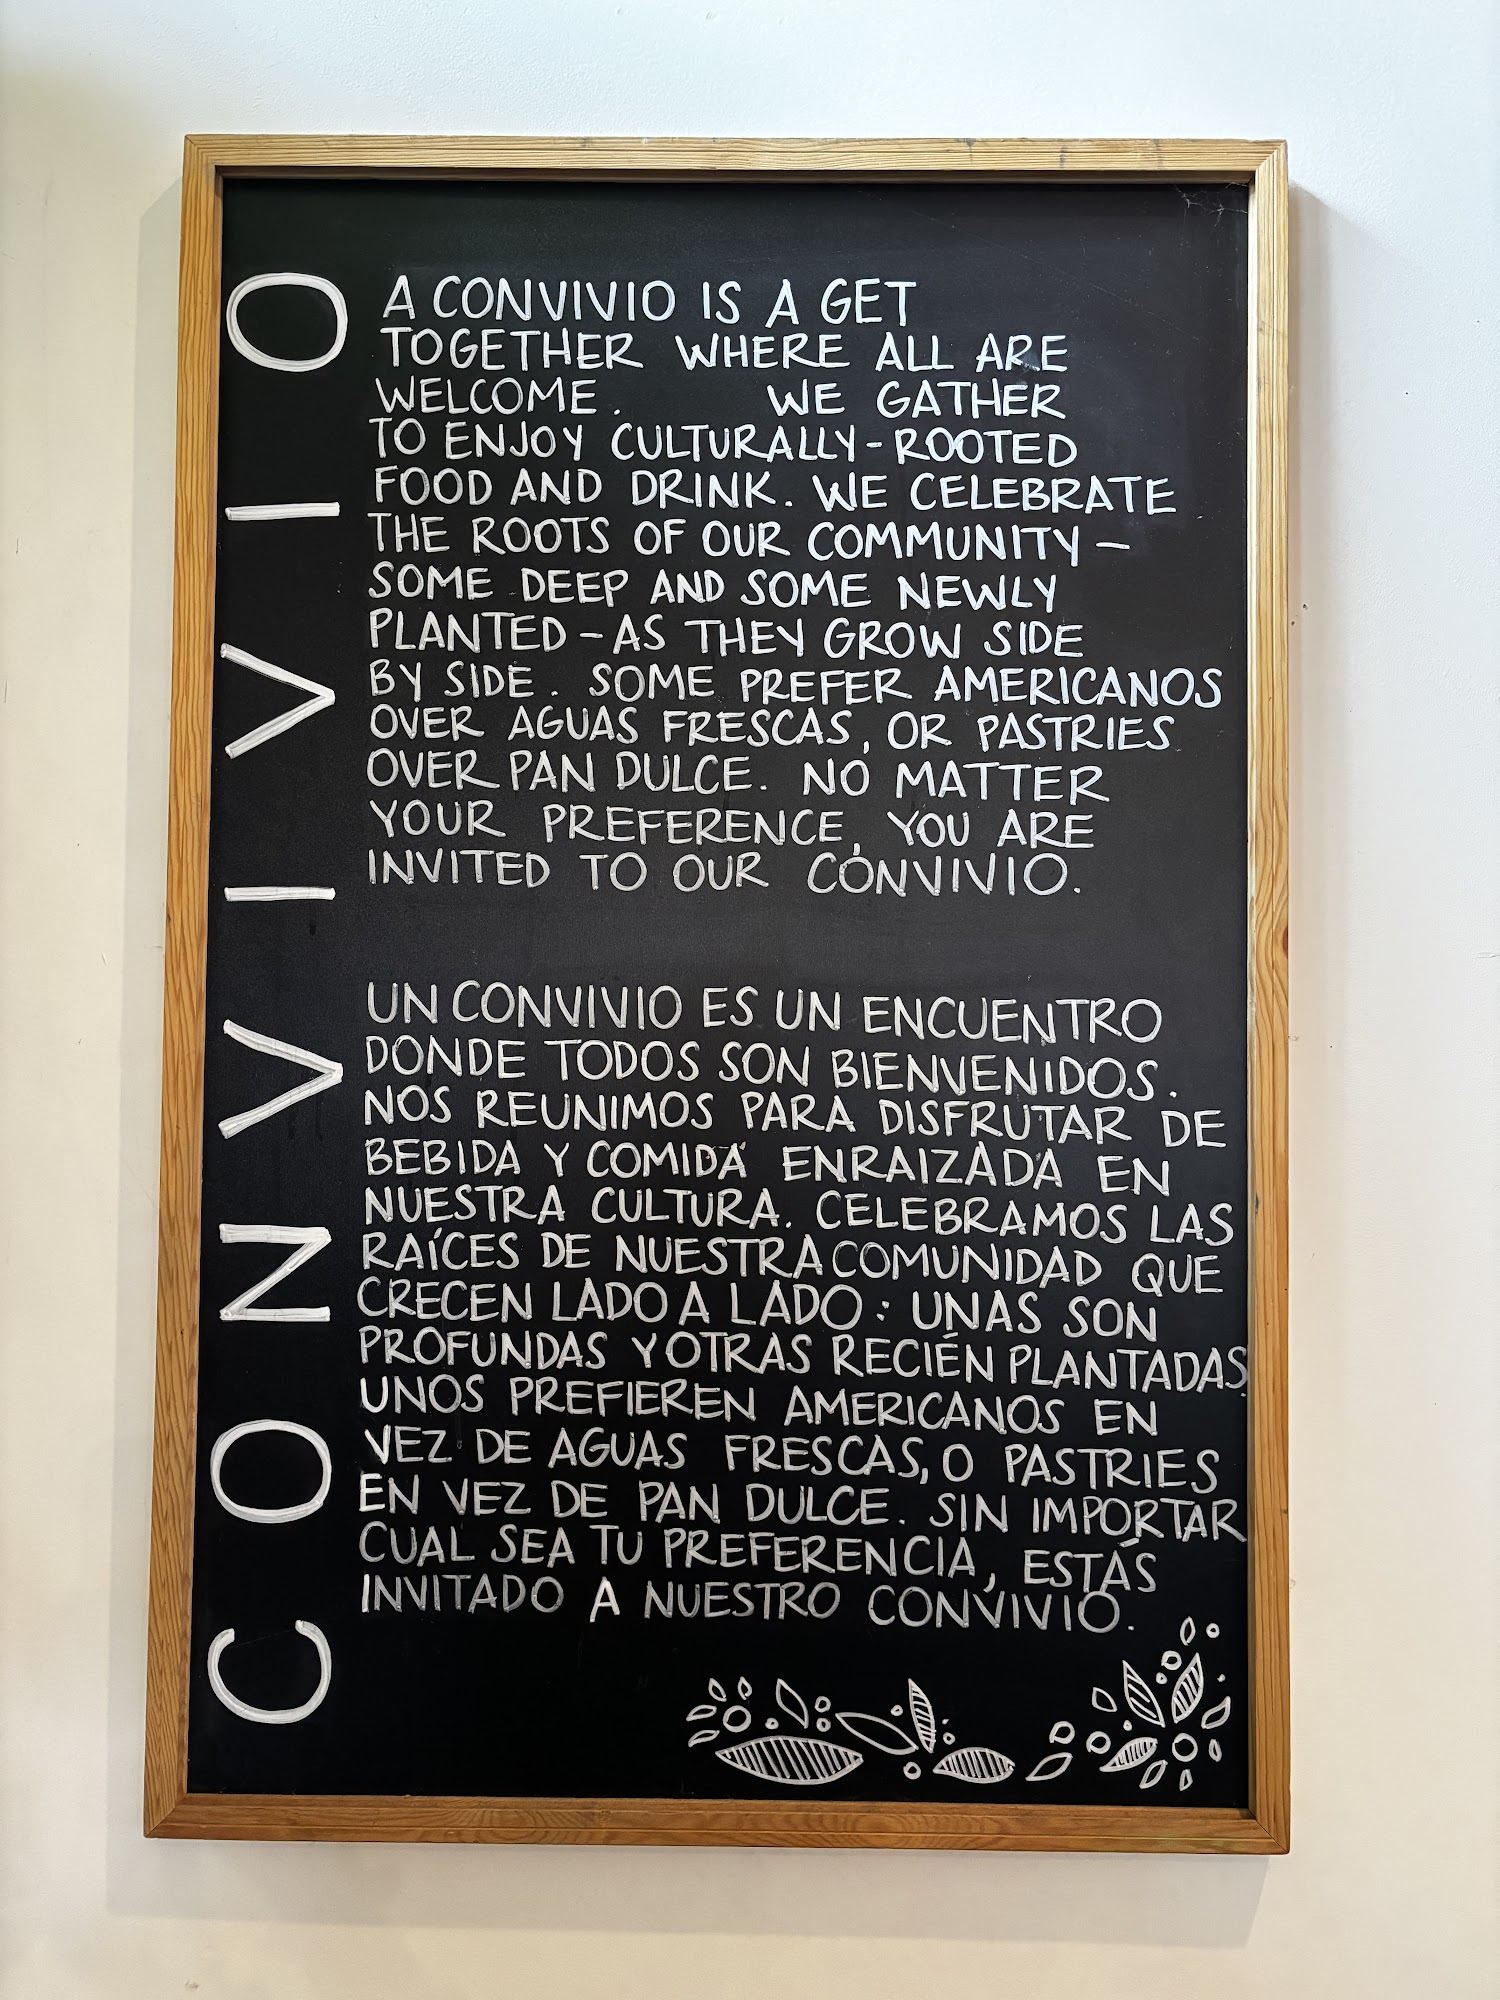 CONVIVIO
A CONVIVIO IS A GET
TOGETHER WHERE ALL ARE
WELCOME. WE GATHER
TO ENJOY CULTURALLY-ROOTED
FOOD AND DRINK. WE CELEBRATE
THE ROOTS OF OUR COMMUNITY –
SOME DEEP AND SOME NEWLY
PLANTED – AS THEY GROW SIDE
BY SIDE. SOME PREFER AMERICANOS
OVER AGUAS FRESCAS, OR PASTRIES
OVER PAN DULCE. NO MATTER
YOUR PREFERENCE, YOU ARE
INVITED TO OUR CONVIVIO.
UN CONVIVIO ES UN ENCUENTRO
DONDE TODOS SON BIENVENIDOS.
NOS REUNIMOS PARA DISFRUTAR DE
BEBIDA Y COMIDA ENRAIZADA EN
NUESTRA CULTURA. CELEBRAMOS LAS
RAÍCES DE NUESTRA COMUNIDAD QUE
CRECEN LADO A LADO: UNAS SON
PROFUNDAS Y OTRAS RECIÉN PLANTADAS.
UNOS PREFIEREN AMERICANOS EN
VEZ DE AGUAS FRESCAS, O PASTRIES
EN VEZ DE PAN DULCE. SIN IMPORTAR
CUAL SEA TU PREFERENCIA, ESTÁS
INVITADO A NUESTRO CONVIVIO.